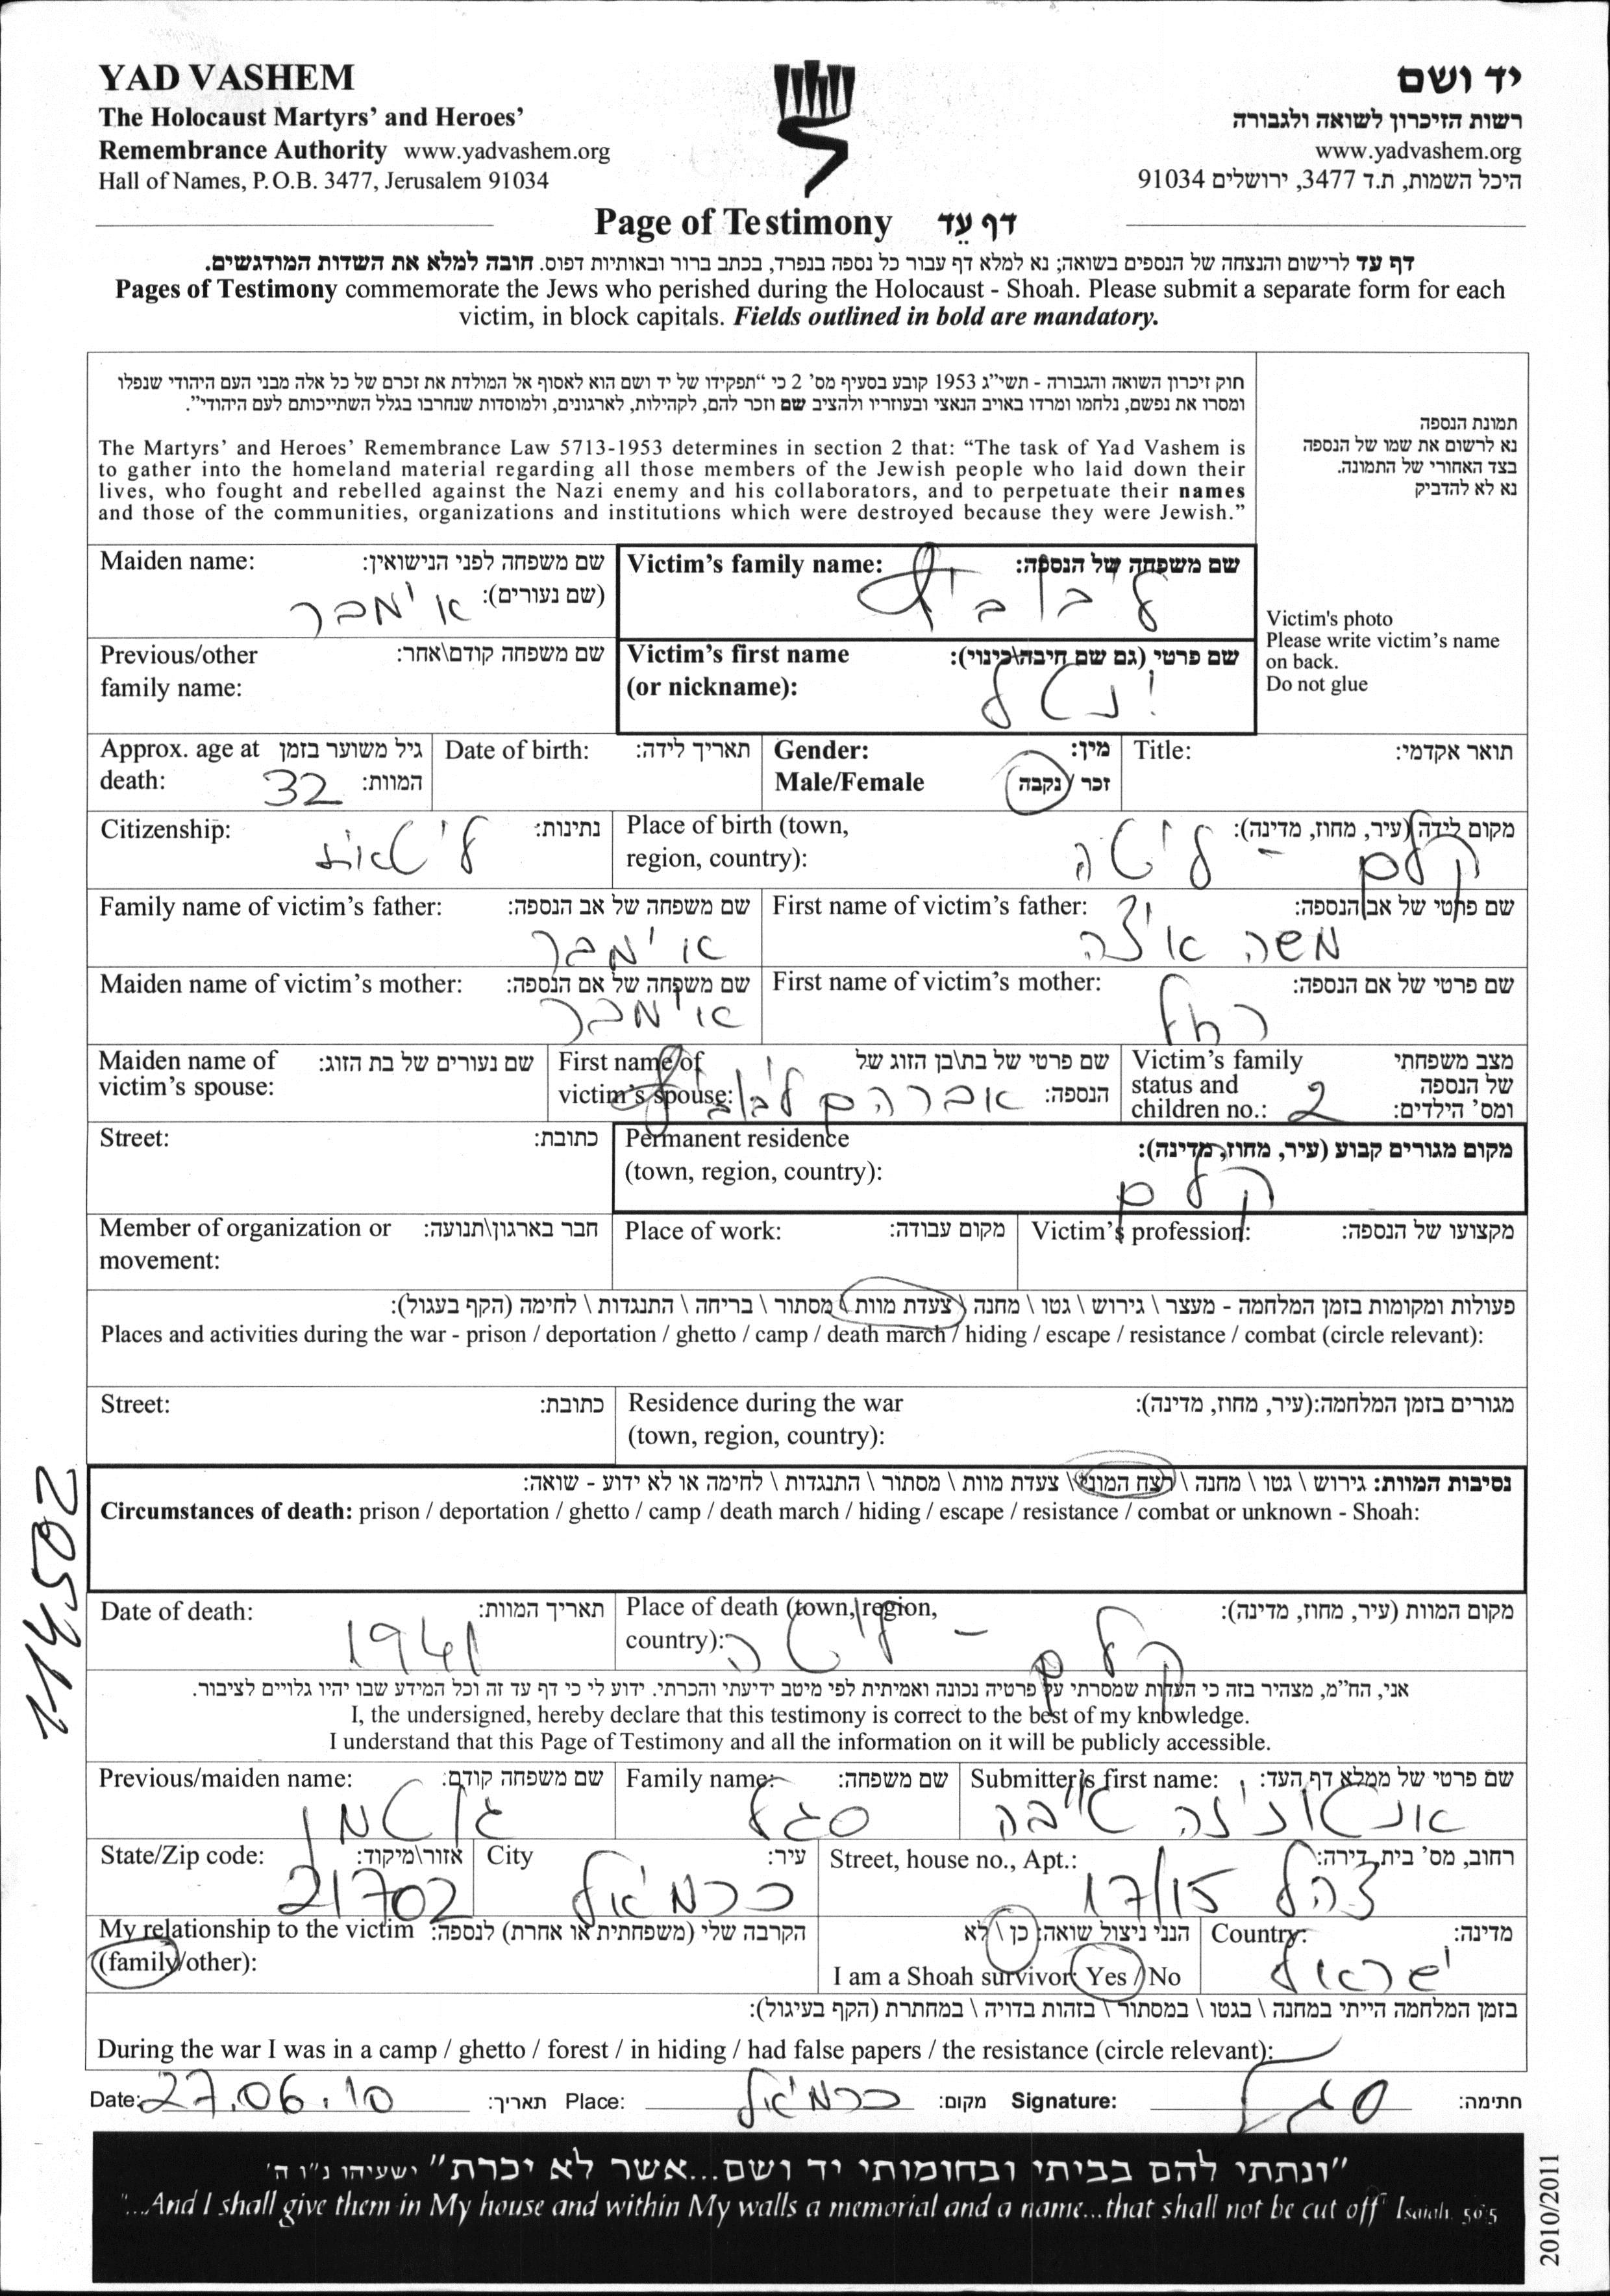 YAD VASHEM
The Holocaust Martyrs' and Heroes'
Remembrance Authority www.yadvashem.org
Hall of Names, P.O.B. 3477, Jerusalem 91034
יד ושם
רשות הזיכרון לשואה ולגבורה
www.yadvashem.org
היכל השמות, ת.ד 3477, ירושלים 91034
Page of Testimony דף עֵד
דף עד לרישום והנצחה של הנספים בשואה; נא למלא דף עבור כל נספה בנפרד, בכתב ברור ובאותיות דפוס. חובה למלא את השדות המודגשים.
Pages of Testimony commemorate the Jews who perished during the Holocaust - Shoah. Please submit a separate form for each
victim, in block capitals. Fields outlined in bold are mandatory.
חוק זיכרון השואה והגבורה - תשי"ג 1953 קובע בסעיף מס' 2 כי "תפקידו של יד ושם הוא לאסוף אל המולדת את זכרם של כל אלה מבני העם היהודי שנפלו
ומסרו את נפשם, נלחמו ומרדו באויב הנאצי ובעוזריו ולהציב שם וזכר להם, לקהילות, לארגונים, ולמוסדות שנחרבו בגלל השתייכותם לעם היהודי".
The Martyrs' and Heroes' Remembrance Law 5713-1953 determines in section 2 that: "The task of Yad Vashem is
to gather into the homeland material regarding all those members of the Jewish people who laid down their
lives, who fought and rebelled against the Nazi enemy and his collaborators, and to perpetuate their names
and those of the communities, organizations and institutions which were destroyed because they were Jewish."
תמונת הנספה
נא לרשום את שמו של הנספה
בצד האחורי של התמונה.
נא לא להדביק
Victim's photo
Please write victim's name
on back.
Do not glue
Maiden name: שם משפחה לפני הנישואין:
(שם נעורים): אימבר
Victim's family name: שם משפחה של הנספה:
ליבוביץ
Previous/other שם משפחה קודם\אחר:
family name:
Victim's first name שם פרטי (גם שם חיבה\כינוי):
(or nickname):
Approx. age at גיל משוער בזמן
death: 32 המוות:
Date of birth: תאריך לידה:
Gender: מין:
Male/Female זכר / נקבה
Title: תואר אקדמי:
Citizenship: נתינות:
ליטאית
Place of birth (town, מקום לידה (עיר, מחוז, מדינה):
region, country): קלם - ליטה
Family name of victim's father: שם משפחה של אב הנספה:
אימבר
First name of victim's father: שם פרטי של אב הנספה:
משה איצה
Maiden name of victim's mother: שם משפחה של אם הנספה:
אימבר
First name of victim's mother: שם פרטי של אם הנספה:
רחל
Maiden name of שם נעורים של בת הזוג:
victim's spouse:
First name of שם פרטי של בת\בן הזוג של
victim's spouse: הנספה: אברהם ליבוביץ
Victim's family מצב משפחתי
status and של הנספה
children no.: 2 ומס' הילדים:
Street: כתובת:
Permanent residence מקום מגורים קבוע (עיר, מחוז, מדינה):
(town, region, country): קלם
Member of organization or חבר בארגון\תנועה:
movement:
Place of work: מקום עבודה:
Victim's profession: מקצועו של הנספה:
פעולות ומקומות בזמן המלחמה - מעצר \ גירוש \ גטו \ מחנה \ צעדת מוות \ מסתור \ בריחה \ התנגדות \ לחימה (הקף בעגול):
Places and activities during the war - prison / deportation / ghetto / camp / death march / hiding / escape / resistance / combat (circle relevant):
Street: כתובת:
Residence during the war מגורים בזמן המלחמה:(עיר, מחוז, מדינה):
(town, region, country):
נסיבות המוות: גירוש \ גטו \ מחנה \ רצח המוני \ צעדת מוות \ מסתור \ התנגדות \ לחימה או לא ידוע - שואה:
Circumstances of death: prison / deportation / ghetto / camp / death march / hiding / escape / resistance / combat or unknown - Shoah:
114502
Date of death: תאריך המוות:
1941
Place of death (town, region, מקום המוות (עיר, מחוז, מדינה):
country): קלם - ליטה
אני, הח"מ, מצהיר בזה כי העדות שמסרתי על פרטיה נכונה ואמיתית לפי מיטב ידיעתי והכרתי. ידוע לי כי דף עד זה וכל המידע שבו יהיו גלויים לציבור.
I, the undersigned, hereby declare that this testimony is correct to the best of my knowledge.
I understand that this Page of Testimony and all the information on it will be publicly accessible.
Previous/maiden name: שם משפחה קודם:
Family name: שם משפחה:
סגל
Submitter's first name: שם פרטי של ממלא דף העד:
State/Zip code: אזור\מיקוד:
21702
City עיר:
כרמיאל
Street, house no., Apt.: רחוב, מס' בית, דירה:
צהל 17/15
My relationship to the victim הקרבה שלי (משפחתית או אחרת) לנספה:
(family/other):
הנני ניצול שואה: כן \ לא
I am a Shoah survivor: Yes / No
Country: מדינה:
ישראל
בזמן המלחמה הייתי במחנה \ בגטו \ במסתור \ בזהות בדויה \ במחתרת (הקף בעיגול):
During the war I was in a camp / ghetto / forest / in hiding / had false papers / the resistance (circle relevant):
Date: 27.06.10 תאריך: Place: כרמיאל מקום: Signature: סגל חתימה:
"ונתתי להם בביתי ובחומותי יד ושם...אשר לא יכרת" ישעיהו נ"ו ה'
"...And I shall give them in My house and within My walls a memorial and a name...that shall not be cut off" Isaiah 56:5
2010/2011